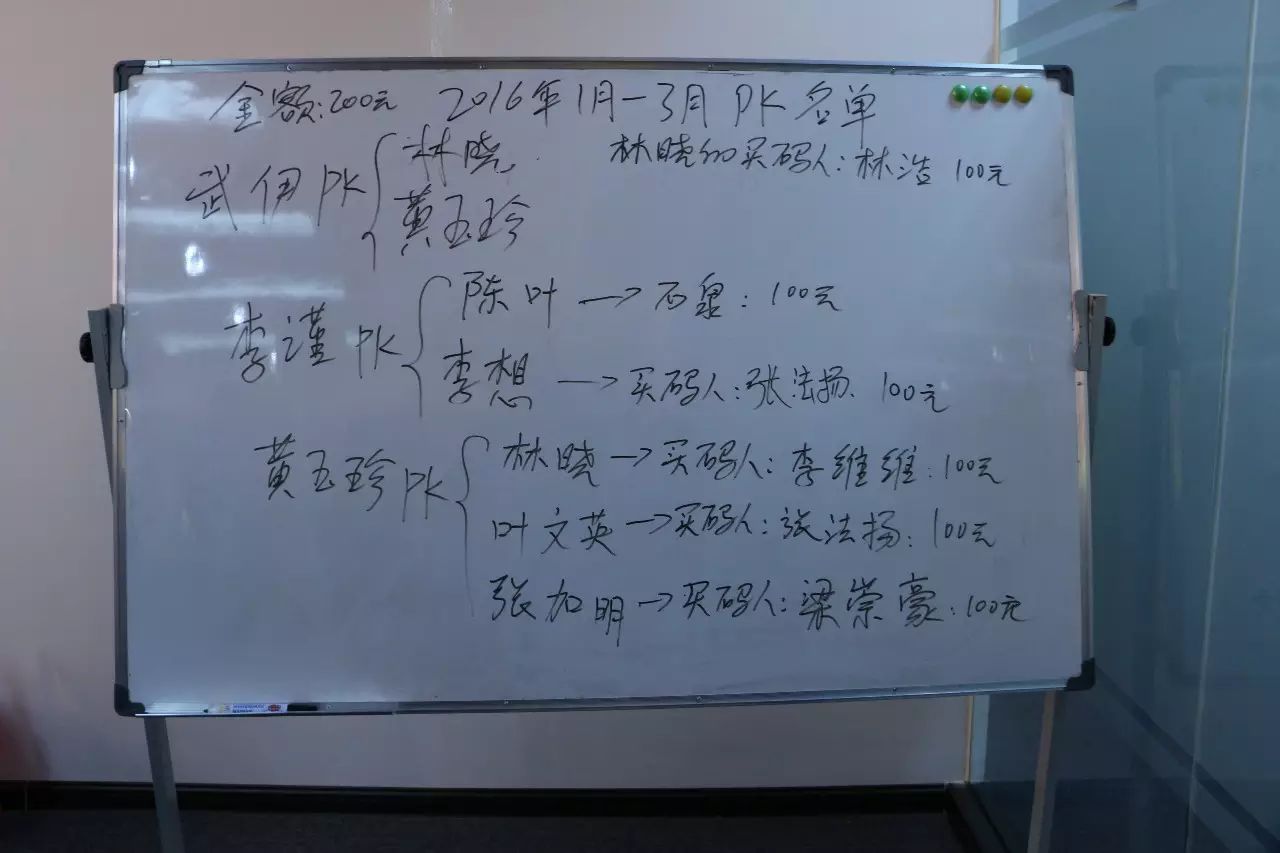 金额:200元 2016年1月-3月 PK 名单
武伊PK{林晓 林晓的买码人:林浩 100元
黄玉玲
李谨PK{陈叶→石泉:100元
李想→买码人:张法扬 100元
黄玉珍PK{林晓→买码人:李维维:100元
叶文英→买码人:张法扬:100元
张加明→买码人:梁崇豪:100元